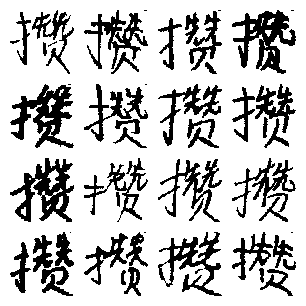 攒攒攒攒
攒攒攒攒
攒攒攒攒
攒攒攒攒